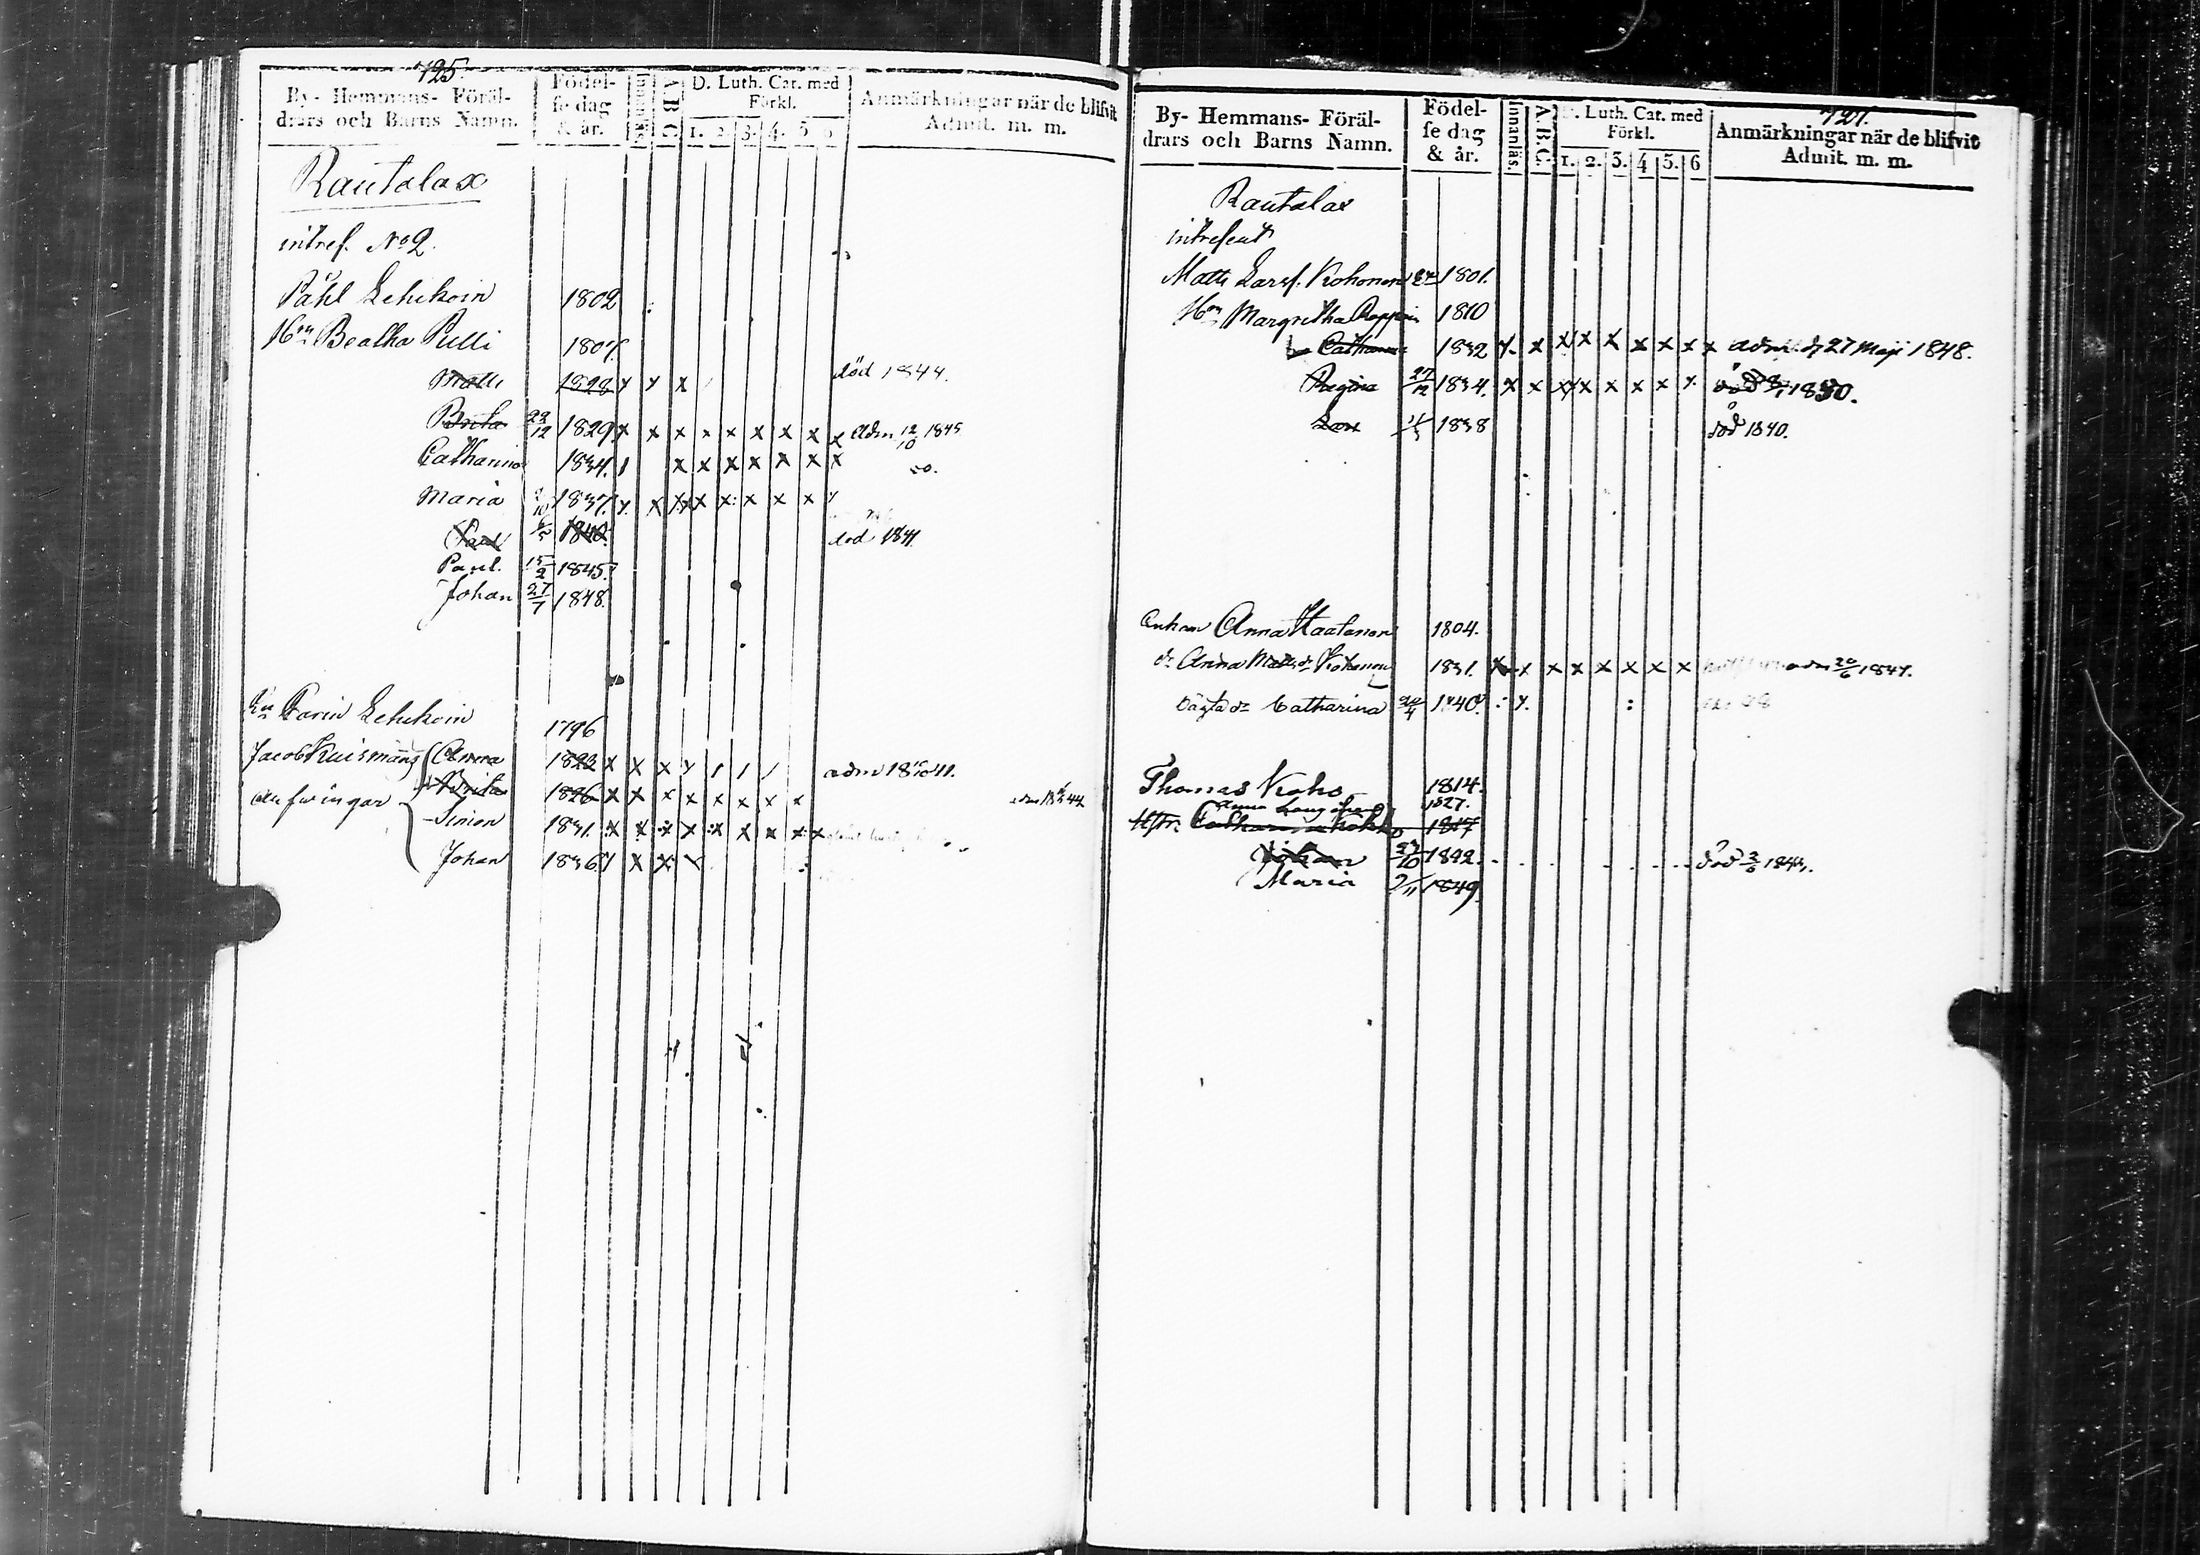 725.
By- Hemmans- Föräl-
drars och Barns Namn.
Födel-
se dag
& år.
Innanläs.
A B C
D. Luth. Cat. med
Förkl.
1. 2. 3. 4. 5. 6
Anmärkningar när de blifvit
Admit. m. m.
Rautalax
intres. No 2.
Påhl Lehikoin 1802
Hn Beatha Pulli 1807
Matti 1828 x x x död 1844.
Brita 23/12 1829 x x x x x x x x x adm 12/10 1845
Catharina 1834. x x x x x x x do.
Maria 1837. x x x x x x x x
Paul 6/5 1840. död 1841.
Paul. 15/2 1845.
Johan 27/7 1848.
Karin Lehikoin 1796
Jacob Kuismans Anna 1822 x x x x adm 18 41.
Brita 1826 x x x x x x x x adm 18 44
Simon 1831. x x x x x x x x x
Johan 1836 x x x
727.
By- Hemmans- Föräl-
drars och Barns Namn.
Födel-
se dag
& år.
Innanläs.
A B C
D. Luth. Cat. med
Förkl.
1. 2. 3. 4 5. 6
Anmärkningar när de blifvit
Admit. m. m.
Rautalax
intresent
Matts Larss. Kohonen 1801.
Hn Margretha 1810
Catharina 1832 x x x x x x x x x 27 Maji 1848.
Regina 27/12 1834. x x x x x x x x x död 1850.
1838 död 1840.
Enkan Anna Haatanen 1804.
dr Anna Mattsdr Kohonen 1831. x x x x x x x x adm 20/6 1847.
Oägta dr Catharina 20/4 1840.
Thomas Koho 1814.
Anna 1827.
Hstr. Catharina 1817
Johan 23/10 1842. död 2/6 1844.
Maria 2/11 1849.